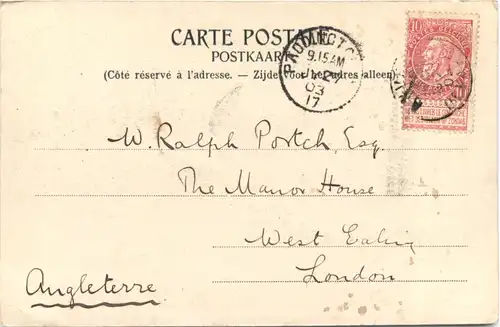 CARTE POSTALE
POSTKAART
(Côté réservé à l'adresse. — Zijde voor het adres alleen)
PADDINGTON
9.15AM
JY 21
03
17
10
W. Ralph Portch, Esq.
The Manor House
West Ealing
London
Angleterre